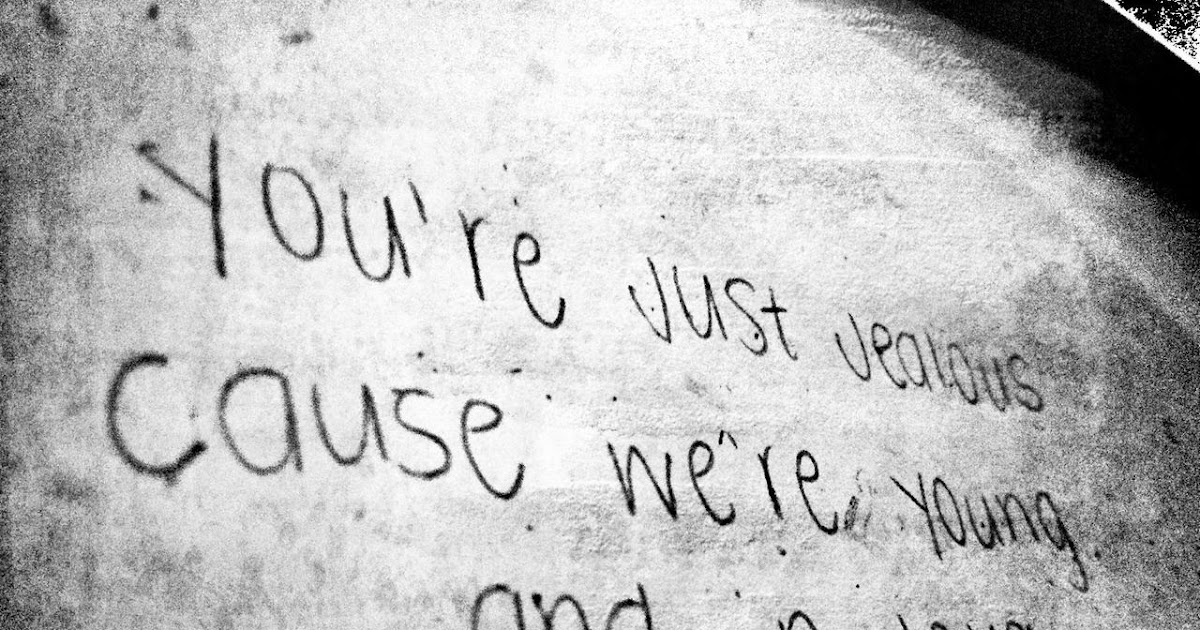 You're just jealous
cause we're young
and in love